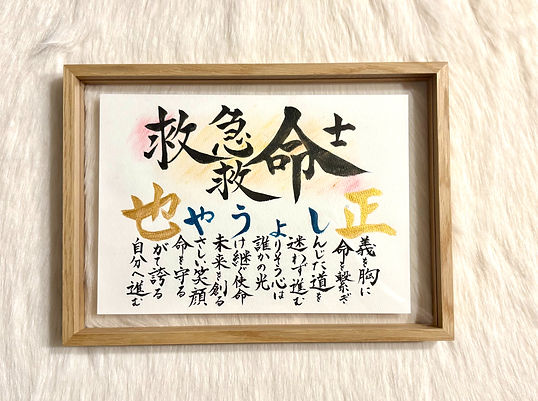 救急救命士
正義を胸に
命を繋ぎ
しんじた道を
迷わず進む
よりそう心は
誰かの光
うけ継ぐ使命
未来を創る
やさしい笑顔
命を守る
也がて誇る
自分へ進む